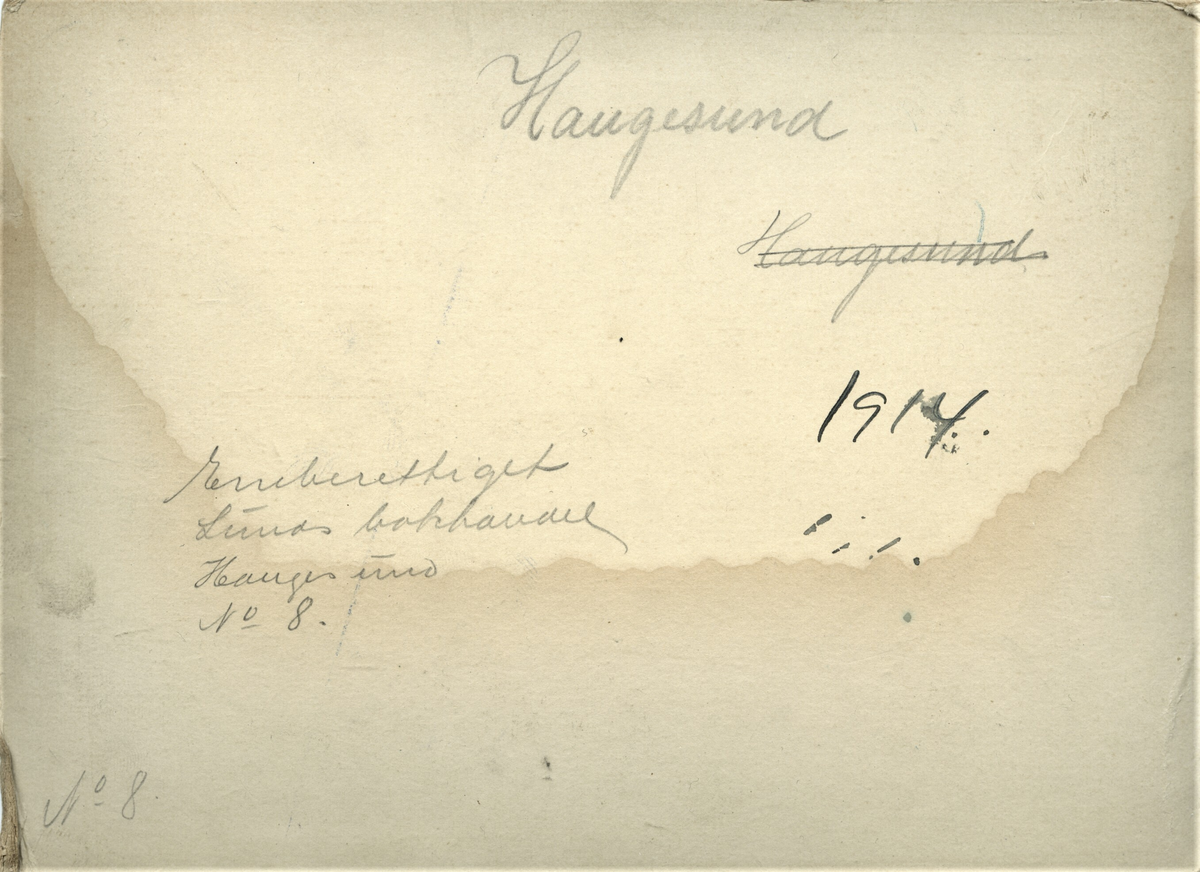 Haugesund
Haugesund
1914.
Eneberettiget
Lunds bokhandel
Haugesund
No 8.
No 8